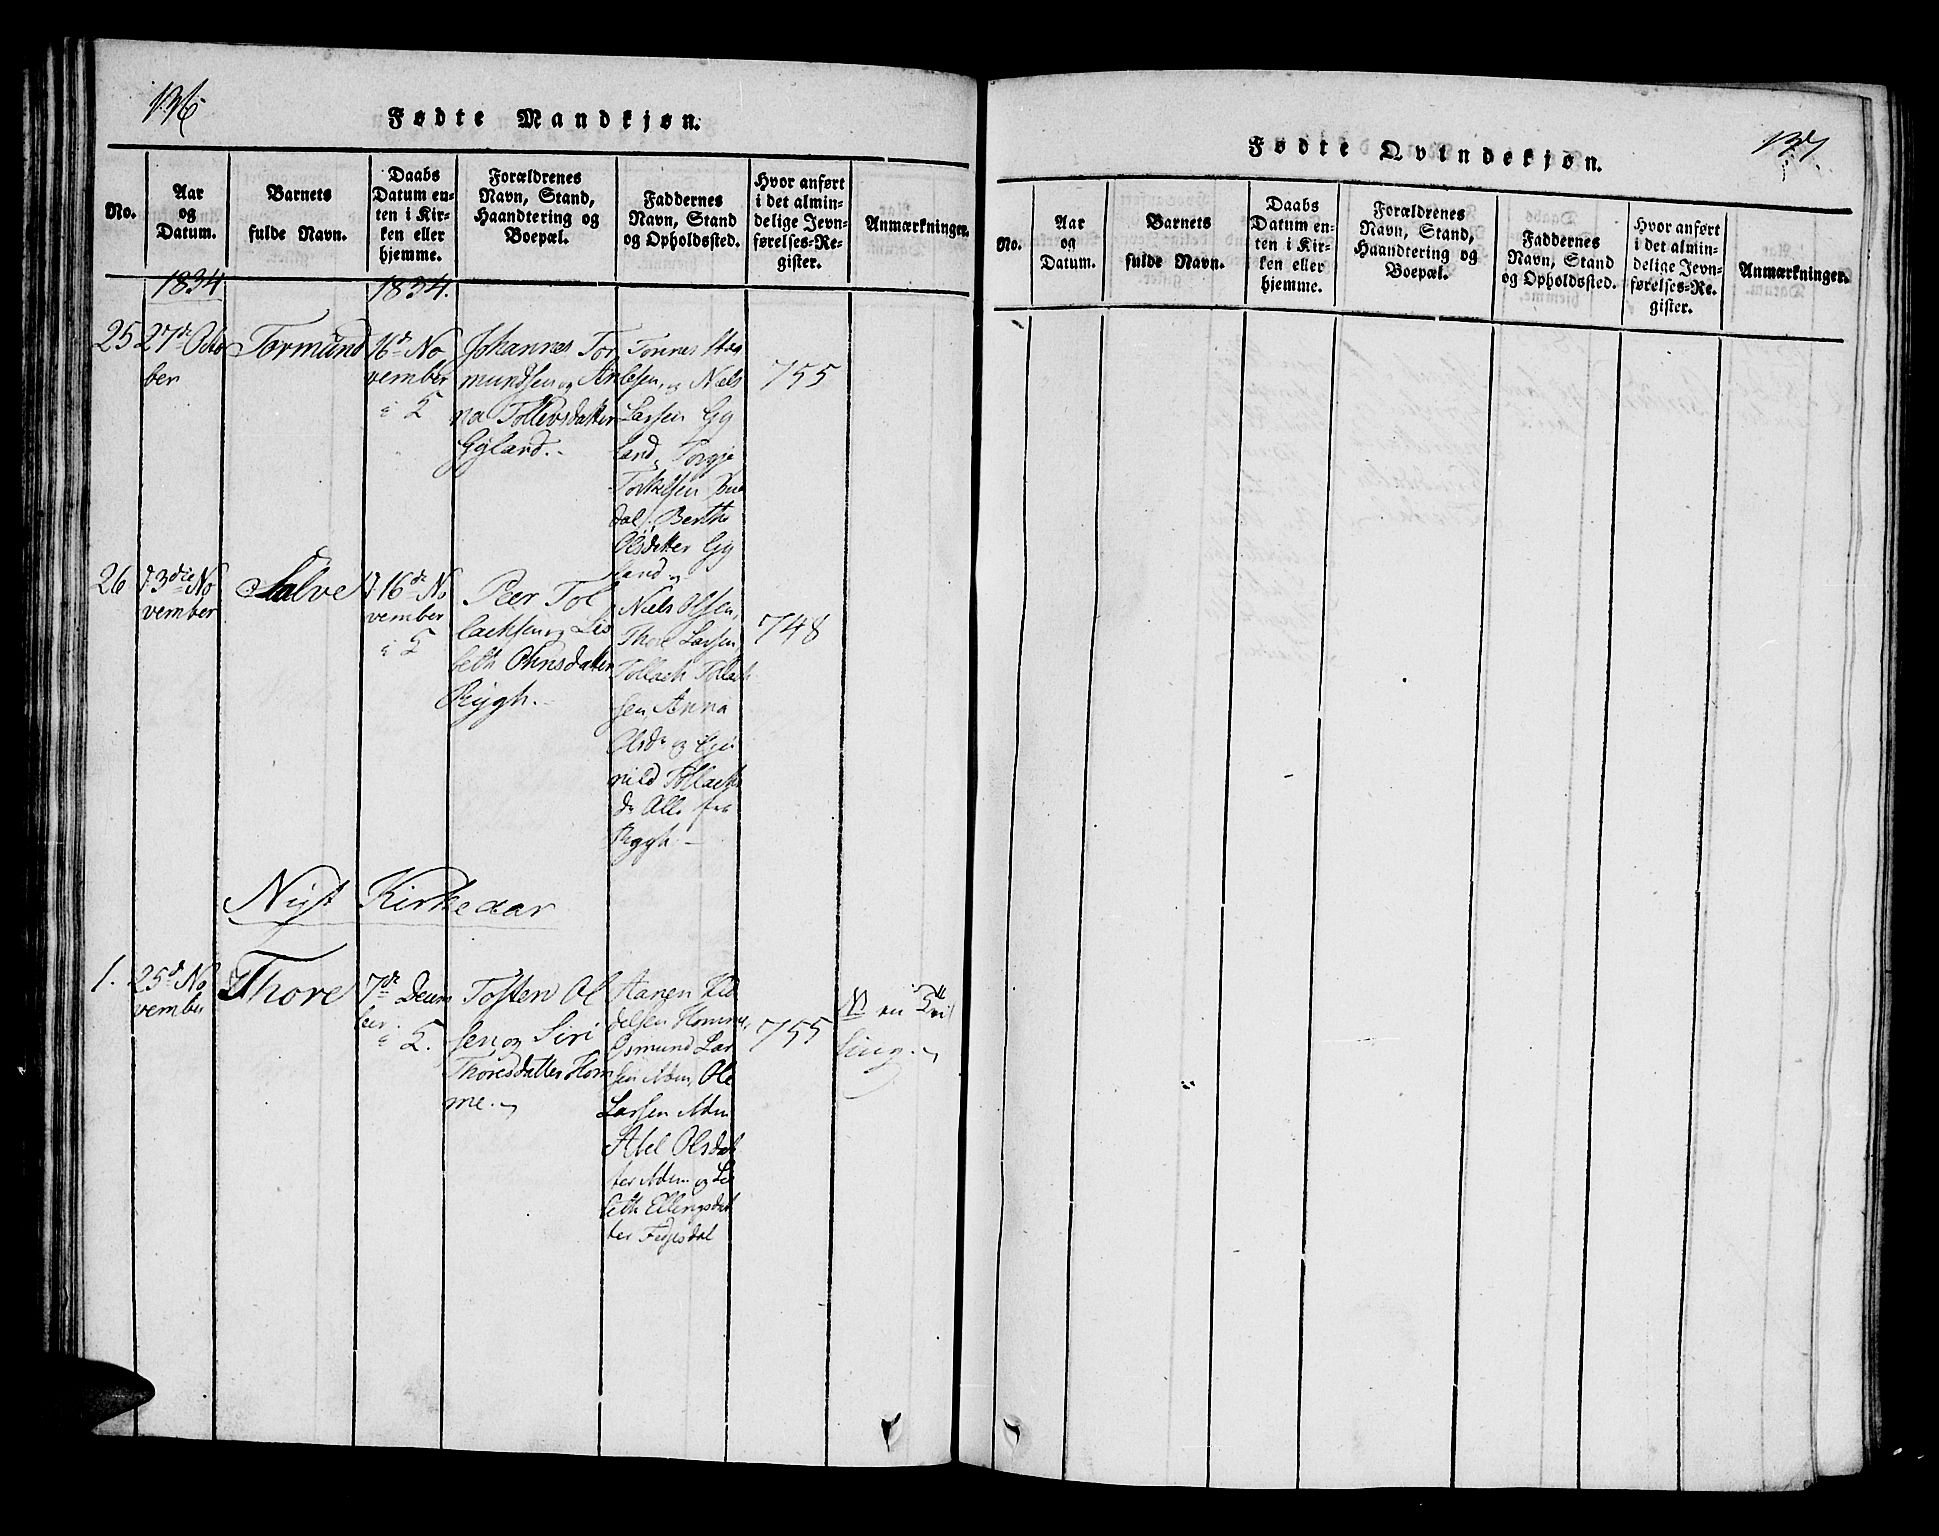 136
Fødte Mandkjøn.
No.
Aar
og
Datum.
Barnets
fulde Navn.
Daabs
Datum en-
ten i Kir-
ken eller
hjemme.
Forældrenes
Navn, Stand,
Haandtering og
Boepæl.
Faddernes
Navn, Stand
og Opholdssted.
Hvor anført
i det almin-
delige Jevn-
førelses-Re-
gister.
Anmærkninger.
1834
1834.
25
27de Octo
ber
Tormund
16de No
vember
Johannes Tor
mundsen og An
na Tollevsdatter
Gyland.
Tonnes
og Niels
Larsen Gy
land,
Berthe
Olsdatter Gy
land
755
26
3die No
vember
Salve
16de No
vember
Peer Tol
lachsen og Lis
beth Ohnsdatter
Rygh.
Niels Olsen,
Thore Larsen,
Tollach Tollach
sen, Anna
Olsdr og
nild Tollachs
dr Alle fra
Rygh.
748
Nyt Kirkeaar
1.
25de No
vember
Thore
7de Decem
ber
Tosten Ol
sen og Siri
Thoresdatter Hom
me.
Aanen
delsen Homme,
Osmund Lar
sen Ole
Larsen
Abel Olsdat
ter og Lis
beth Ellingsdat
ter Fedjesdal
755
137
Fødte Qvindekjøn.
No.
Aar
og
Datum.
Barnets
fulde Navn.
Daabs
Datum en-
ten i Kir-
ken eller
hjemme.
Forældrenes
Navn, Stand,
Haandtering og
Boepæl.
Faddernes
Navn, Stand
og Opholdssted.
Hvor anført
i det almin-
delige Jevn-
førelses-Re-
gister.
Anmærkninger.